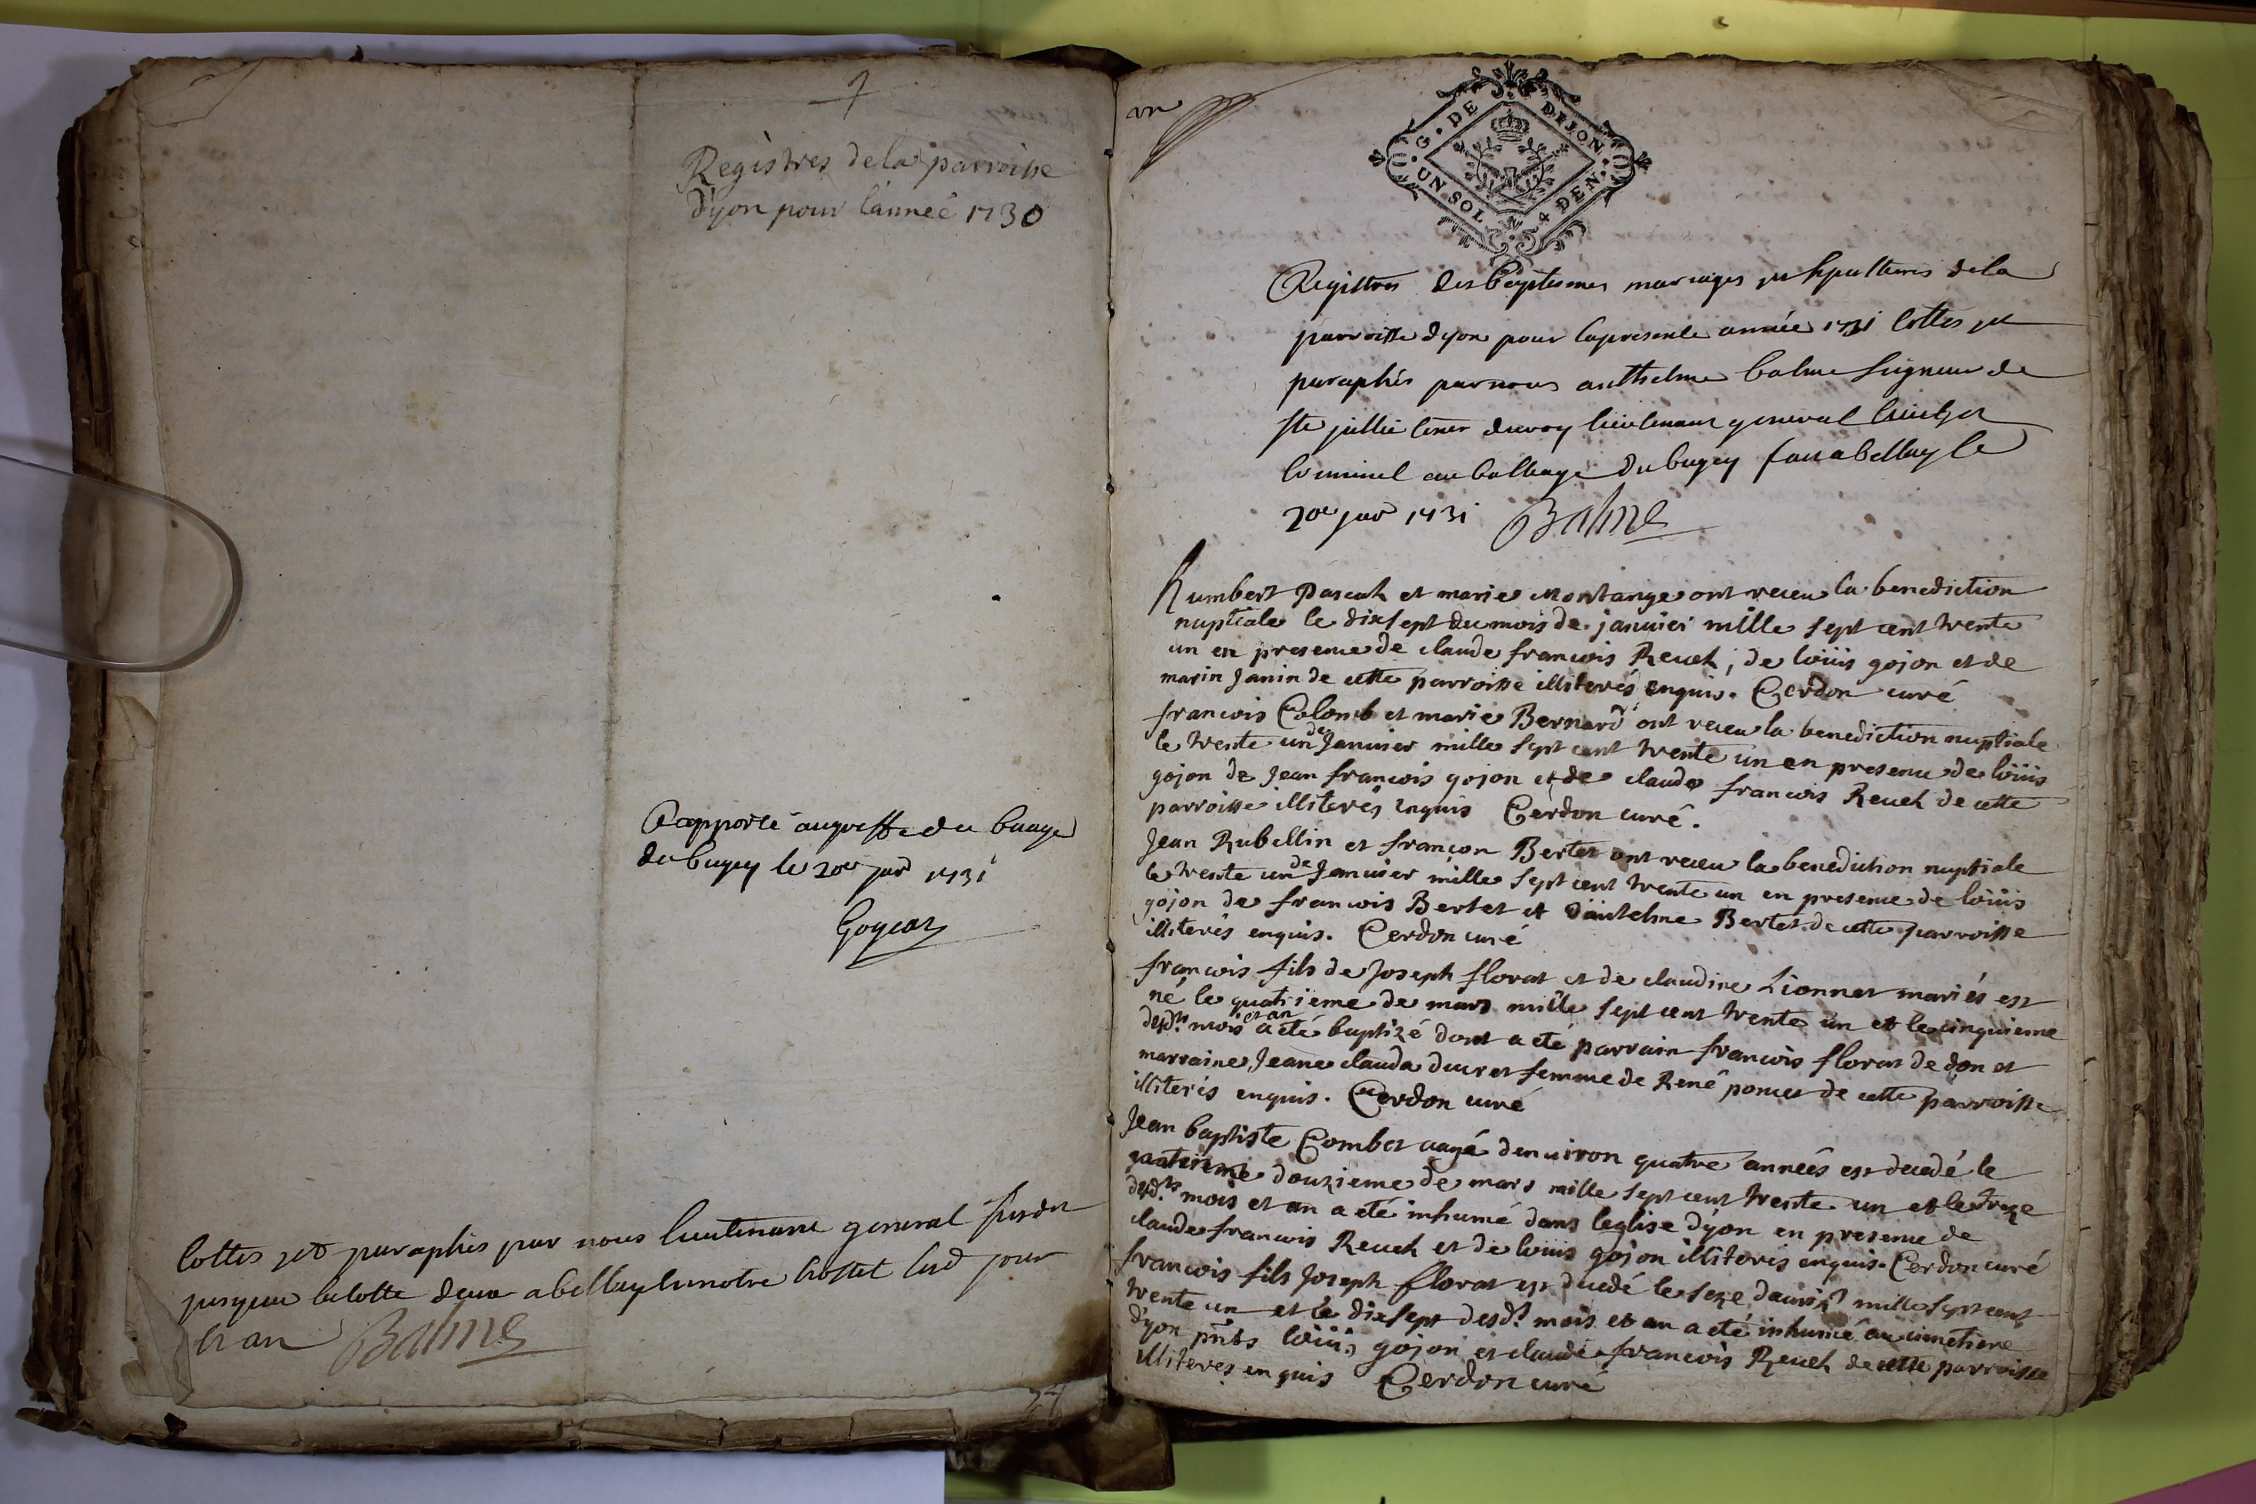 Registres de la parroisse
d'yon pour l'année 1730
Rapporté au greffe du
du bugey le 20e 1731
Cottes et paraphés par nous lieutenant general
jusques
et an Balme
un
G. DE DIJON.
UN SOL 4 DEN.
Registres des baptesmes mariages et sepultures de la
parroisse dyon pour la presente année 1731 cottes et
paraphés par nous anthelme balme seigneur de
ste jullie coner du roy lieutenant general civil et
criminel au balliage du bugey fait a belley le
20e 1731 Balme
Humbert Pascah et marie Montange ont receu la benediction
nuptiale le dixsept du mois de janvier mille sept cent trente
un en presence de claude françois Reueh, de loüis gojon et de
marin Janin de cette parroisse illiterés enquis. Cerdon curé
françois Colomb et marie Bernard ont receu la benediction nuptiale
le trente un de Janvier mille sept cent trente un en presence de loüis
gojon de Jean françois gojon et de claude françois Reueh de cette
parroisse illiterés enquis Cerdon curé.
Jean Rubellin et françon Bertet ont receu la benediction nuptiale
le trente un de Janvier mille sept cent trente un en presence de loüis
gojon de françois Bertet et d'antelme Bertet de cette parroisse
illiterés enquis. Cerdon curé
françois fils de Joseph florat et de claudine Lionnet mariés est
né le quatrieme de mars mille sept cent trente un et le cinquieme
desd.ts mois et an a été baptizé dont a été parrain françois florat de don et
marraine Jeane clauda ducret femme de René poncet de cette parroisse
illiterés enquis. Cerdon curé
Jean baptiste Combet aagé denuiron quatre années est decedé le
douzieme de mars mille sept cent trente un et le treze
desd.ts mois et an a été inhumé dans leglise d'yon en presence de
claude françois Reueh et de loüis gojon illiterés enquis. Cerdon curé
françois fils Joseph florat est decedé le seze d'auril mille sept cent
trente un et le dixsept desd.t mois et an a été inhumé au cimetiere
d'yon pnts loüis gojon et claude françois Reueh de cette parroisse
illiteres enquis Cerdon curé